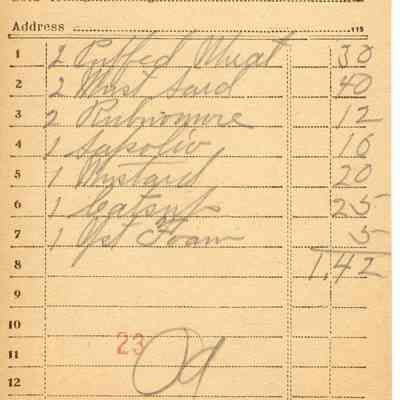 Address
1 2 Puffed Wheat 30
2 2 Must Sard 40
3 2 Rubnomore 12
4 1 Sapolio 10
5 1 Mustard 20
6 1 Catsup 25
7 1 Yst Foam 5
8 1.42
9
10
23
11
12